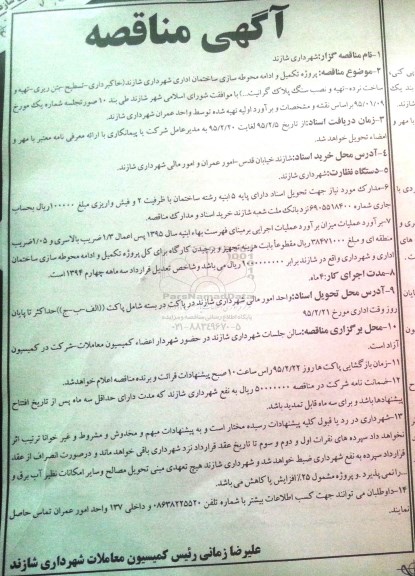 آگهی مناقصه
۱-نام مناقصه گزار:شهرداری شازند
۲-موضوع مناقصه: پروژه تکمیل و ادامه محوطه سازی ساختمان اداری شهرداری شازند(خاکبرداری-تسطیح-بتن ریزی-تهیه و
ساخت نرده-تهیه و نصب سنگ پلاک گرانیت...) با موافقت شورای اسلامی شهر شازند طی بند ۱۰ صورتجلسه شماره یک مورخ
۹۵/۰۱/۰۹ براساس نقشه و مشخصات و برآورد اولیه تهیه شده توسط واحد عمران شهرداری شازند.
۳-زمان دریافت اسناد:از تاریخ ۹۵/۲/۵ لغایت ۹۵/۲/۲۰ به مدیرعامل شرکت یا پیمانکاری با ارائه معرفی نامه معتبر با مهر و
امضاء تحویل خواهد شد.
۴-آدرس محل خرید اسناد:شازند خیابان قدس-امور عمران و امور مالی شهرداری شازند.
۵-دستگاه نظارت:شهرداری شازند.
۶-مدارک مورد نیاز جهت تحویل اسناد دارای پایه ۵ ابنیه رشته ساختمان با ظرفیت ۲ و فیش واریزی مبلغ ۱۰۰۰۰۰ ریال بحساب
جاری شماره نزد بانک ملت شعبه شازند خرید اسناد و مدارک مناقصه.
۷-برآورد عملیات میزان برآورد عملیات اجرایی برمبنای فهرست بهاء ابنیه سال ۱۳۹۵ پس اعمال ۱/۳ ضریب بالاسری و ۱/۰۵ ضریب
منطقه ای و مبلغ ریال مقطوعاً بابت هزینه تجهیز و برچیدن کارگاه برای کل پروژه تکمیل و ادامه محوطه سازی ساختمان
اداری و شهرداری واقع در شازند برابر ریال می باشد وشاخص تعدیل قرارداد سه ماهه چهارم ۱۳۹۴ است.
۸-مدت اجرای کار:۴ماه
۹-آدرس محل تحویل اسناد:واحد امور مالی شهرداری شازند در پاکت در بسته شامل پاکت ((الف-ب-ج))حداکثر تا پایان
روز وقت اداری مورخ ۹۵/۲/۲۱
۱۰-محل برگزاری مناقصه:سالن جلسات شهرداری شازند در حضور شهردار اعضاء کمیسیون معاملات-شرکت در کمیسیون
آزاد است.
۱۱-زمان بازگشایی پاکت ها روز ۹۵/۲/۲۲ راس ساعت ۱۰ صبح پیشنهادات قرائت و برنده مناقصه اعلام خواهدشد.
۱۲-ضمانت نامه شرکت در مناقصه ۵۰۰۰۰۰۰۰ ریال به نفع شهرداری شازند که مدت دارای حداقل سه ماه پس از تاریخ افتتاح
پیشنهادها باشد و برای سه ماه قابل تمدید باشد.
۱۳-شهرداری در رد یا قبول کلیه پیشنهادات رسیده مختار است و به پیشنهادات مبهم و مخدوش و مشروط و غیر خوانا ترتیب اثر
نخواهد داد سپرده های نفرات اول و دوم و سوم تا تاریخ عقد قرارداد نزد شهرداری باقی خواهد ماند و درصورت انصراف از عقد
قرارداد سپرده به نفع شهرداری ضبط خواهد شد و شهرداری شازند هیچ تعهدی مبنی تحویل مصالح وسایر امکانات نظیر آب برق و
... نمی پذیرد. و پروژه مشمول ۲۵٪ افزایش یا کاهش می باشد.
۱۴-داوطلبان می توانند جهت کسب اطلاعات بیشتر با شماره تلفن ۰۸۶۳۸۲۲۵۵۲۰ و داخلی ۱۳۷ واحد امور عمران تماس حاصل
نمایند.
علیرضا زمانی رئیس کمیسیون معاملات شهرداری شازند
ParsNamadData
۰۲۱-۸۸۳۴۹۶۷۰-۵